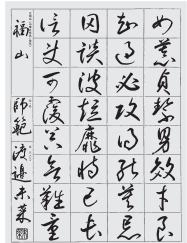 女慕貞絜男效才良
知過必改得能莫忘
罔談彼短靡恃己長
信使可覆器欲難量
福山 師範 渡邉未菜